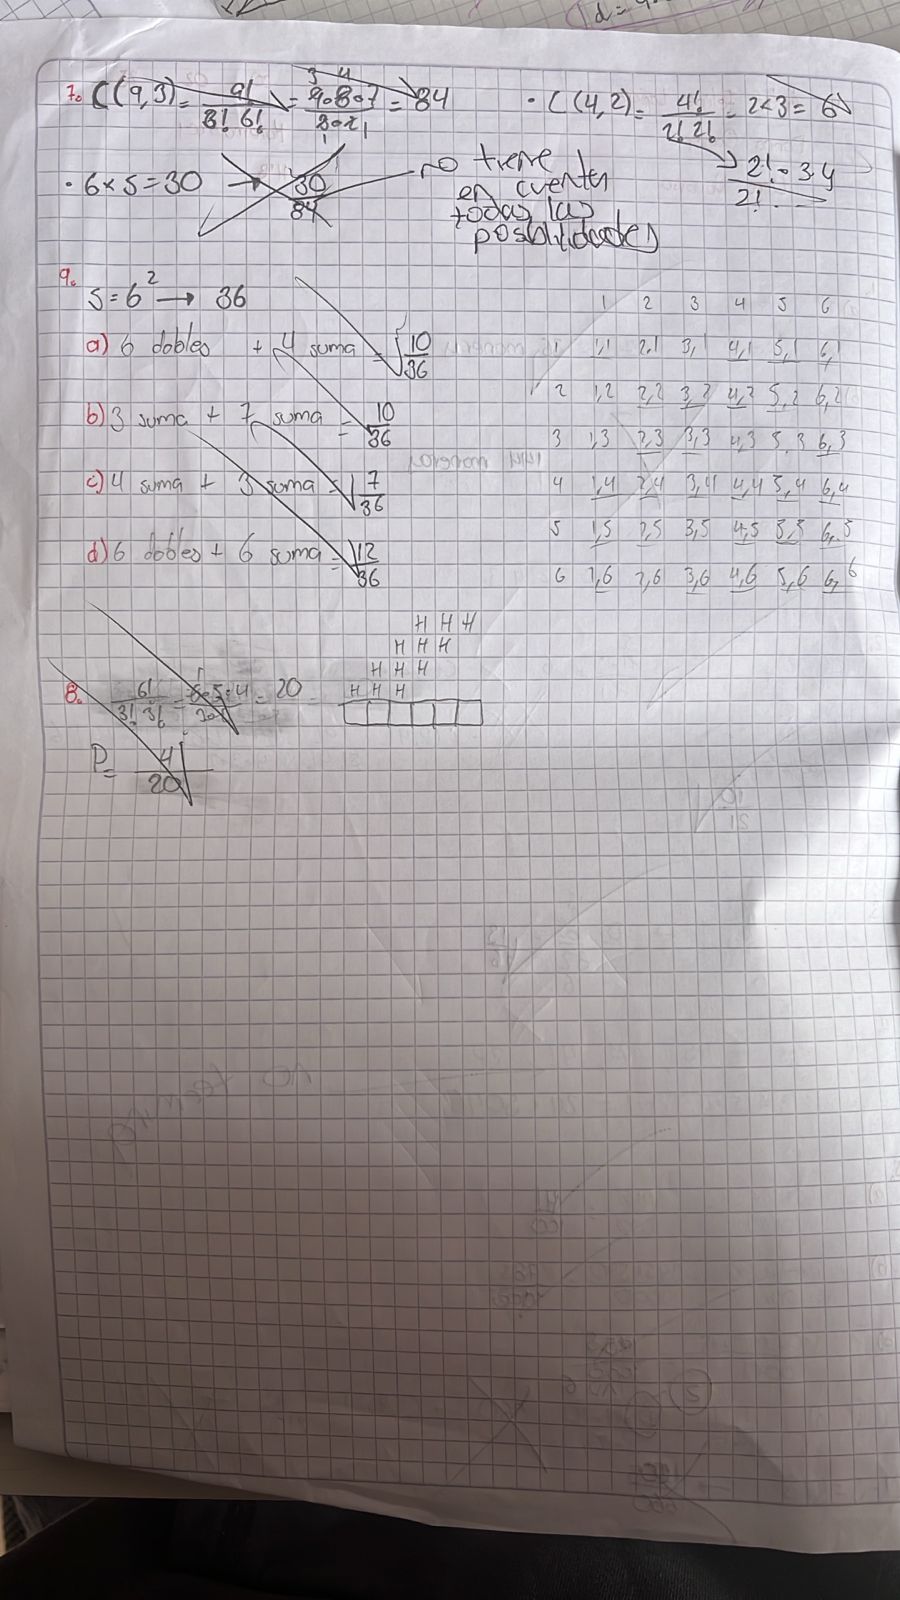 7. C(9,3) = 9! / 3! 6! = 9·8·7 / 3·2·1 = 84
3 4
· C(4,2) = 4! / 2! 2! = 2×3 = 6
2!·3 4 / 2!
· 6×5=30 → 30/84
no tiene
en cuenta
todas las
posibilidades
9.
S=6² → 36
a) 6 dobles + 4 suma = 10/36
b) 3 suma + 7 suma = 10/36
c) 4 suma + 3 suma = 7/36
d) 6 dobles + 6 suma = 12/36
1 2 3 4 5 6
1 1,1 2,1 3,1 4,1 5,1 6,1
2 1,2 2,2 3,2 4,2 5,2 6,2
3 1,3 2,3 3,3 4,3 5,3 6,3
4 1,4 2,4 3,4 4,4 5,4 6,4
5 1,5 2,5 3,5 4,5 5,5 6,5
6 1,6 2,6 3,6 4,6 5,6 6,6
H H H
H H H
H H H
H H H
8. 6! / 3! 3! = 6·5·4 / 3·2·1 = 20
P = 4/20